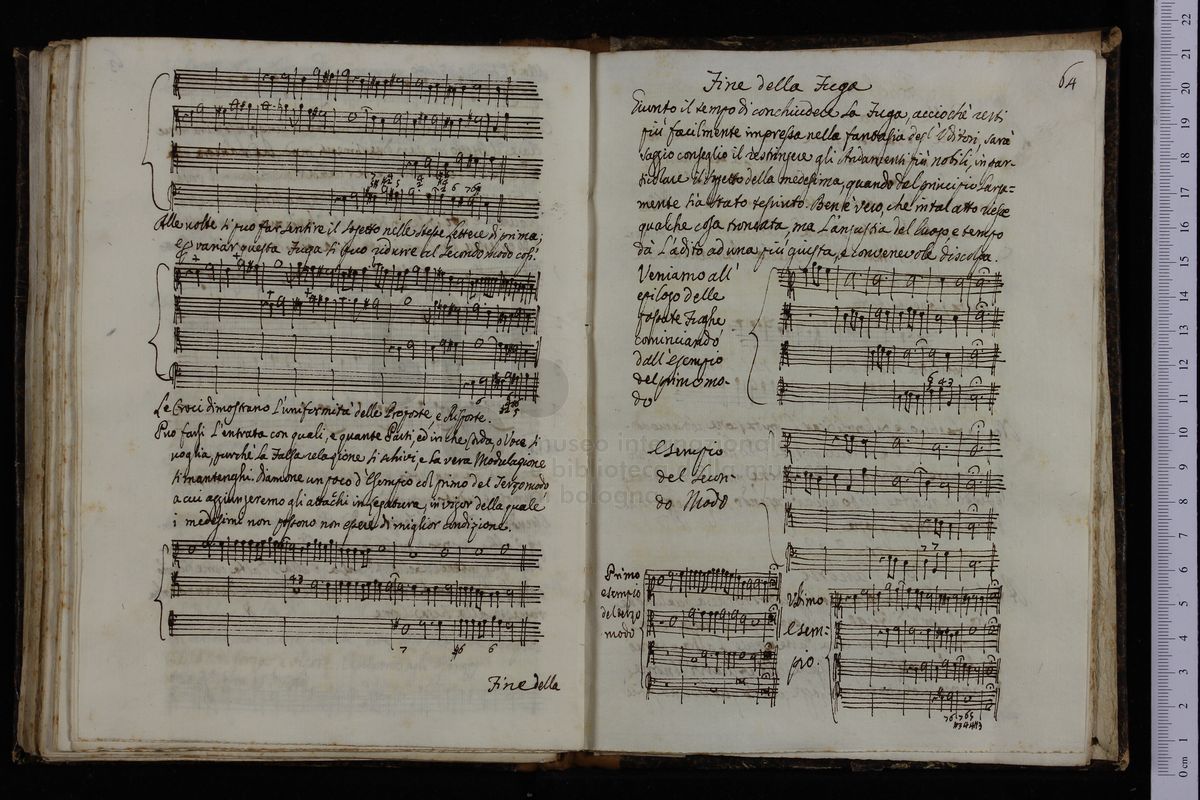 Alle volte si può far sentire il sogetto nelle stesse lettere di prima;
e p variar questa Fuga si può ridurre al Secondo modo così.
Le Croci dimostrano l'uniformità delle Proposte, e Risposte.
Può farsi l'entrata con quali, e quante Parti, ed in che sida, o Voce si
voglia, purchè la falsa relazione si schivi, e la vera Modulazione
si mantenghi. Diamone un poco d'Esempio col primo del Terzo modo
a cui aggiungeremo gli attachi in legatura, in vigor della quale
i medesimi non possono non essere di miglior condizione.
Fine della
64
Fine della Fuga
Giunto il tempo di conchiudere la Fuga, acciochè resti
più facilmente impressa nella fantasia degl'Uditori, sarà
saggio conseglio il restringere gli Andamenti più nobili, in par-
ticolare il sogetto della medesima, quando dal principio larga=
mente sia stato tessuto. Ben è vero, che in tal atto riesce
qualche cosa troncata, ma l'angustia del luogo e tempo
dà l'adito ad una più giusta, e convenevole discolpa.
Veniamo all'
epilogo delle
passate Fughe
cominciando
dall'Esempio
del primo mo-
do
Esempio
del Secon-
do Modo
Primo
esempio
del terzo
modo
Ultimo
Esem-
pio.
museo internazionale
biblioteca della musica
bologna
22
21
20
19
18
17
16
15
14
13
12
11
10
9
8
7
6
5
4
3
2
1
0 cm